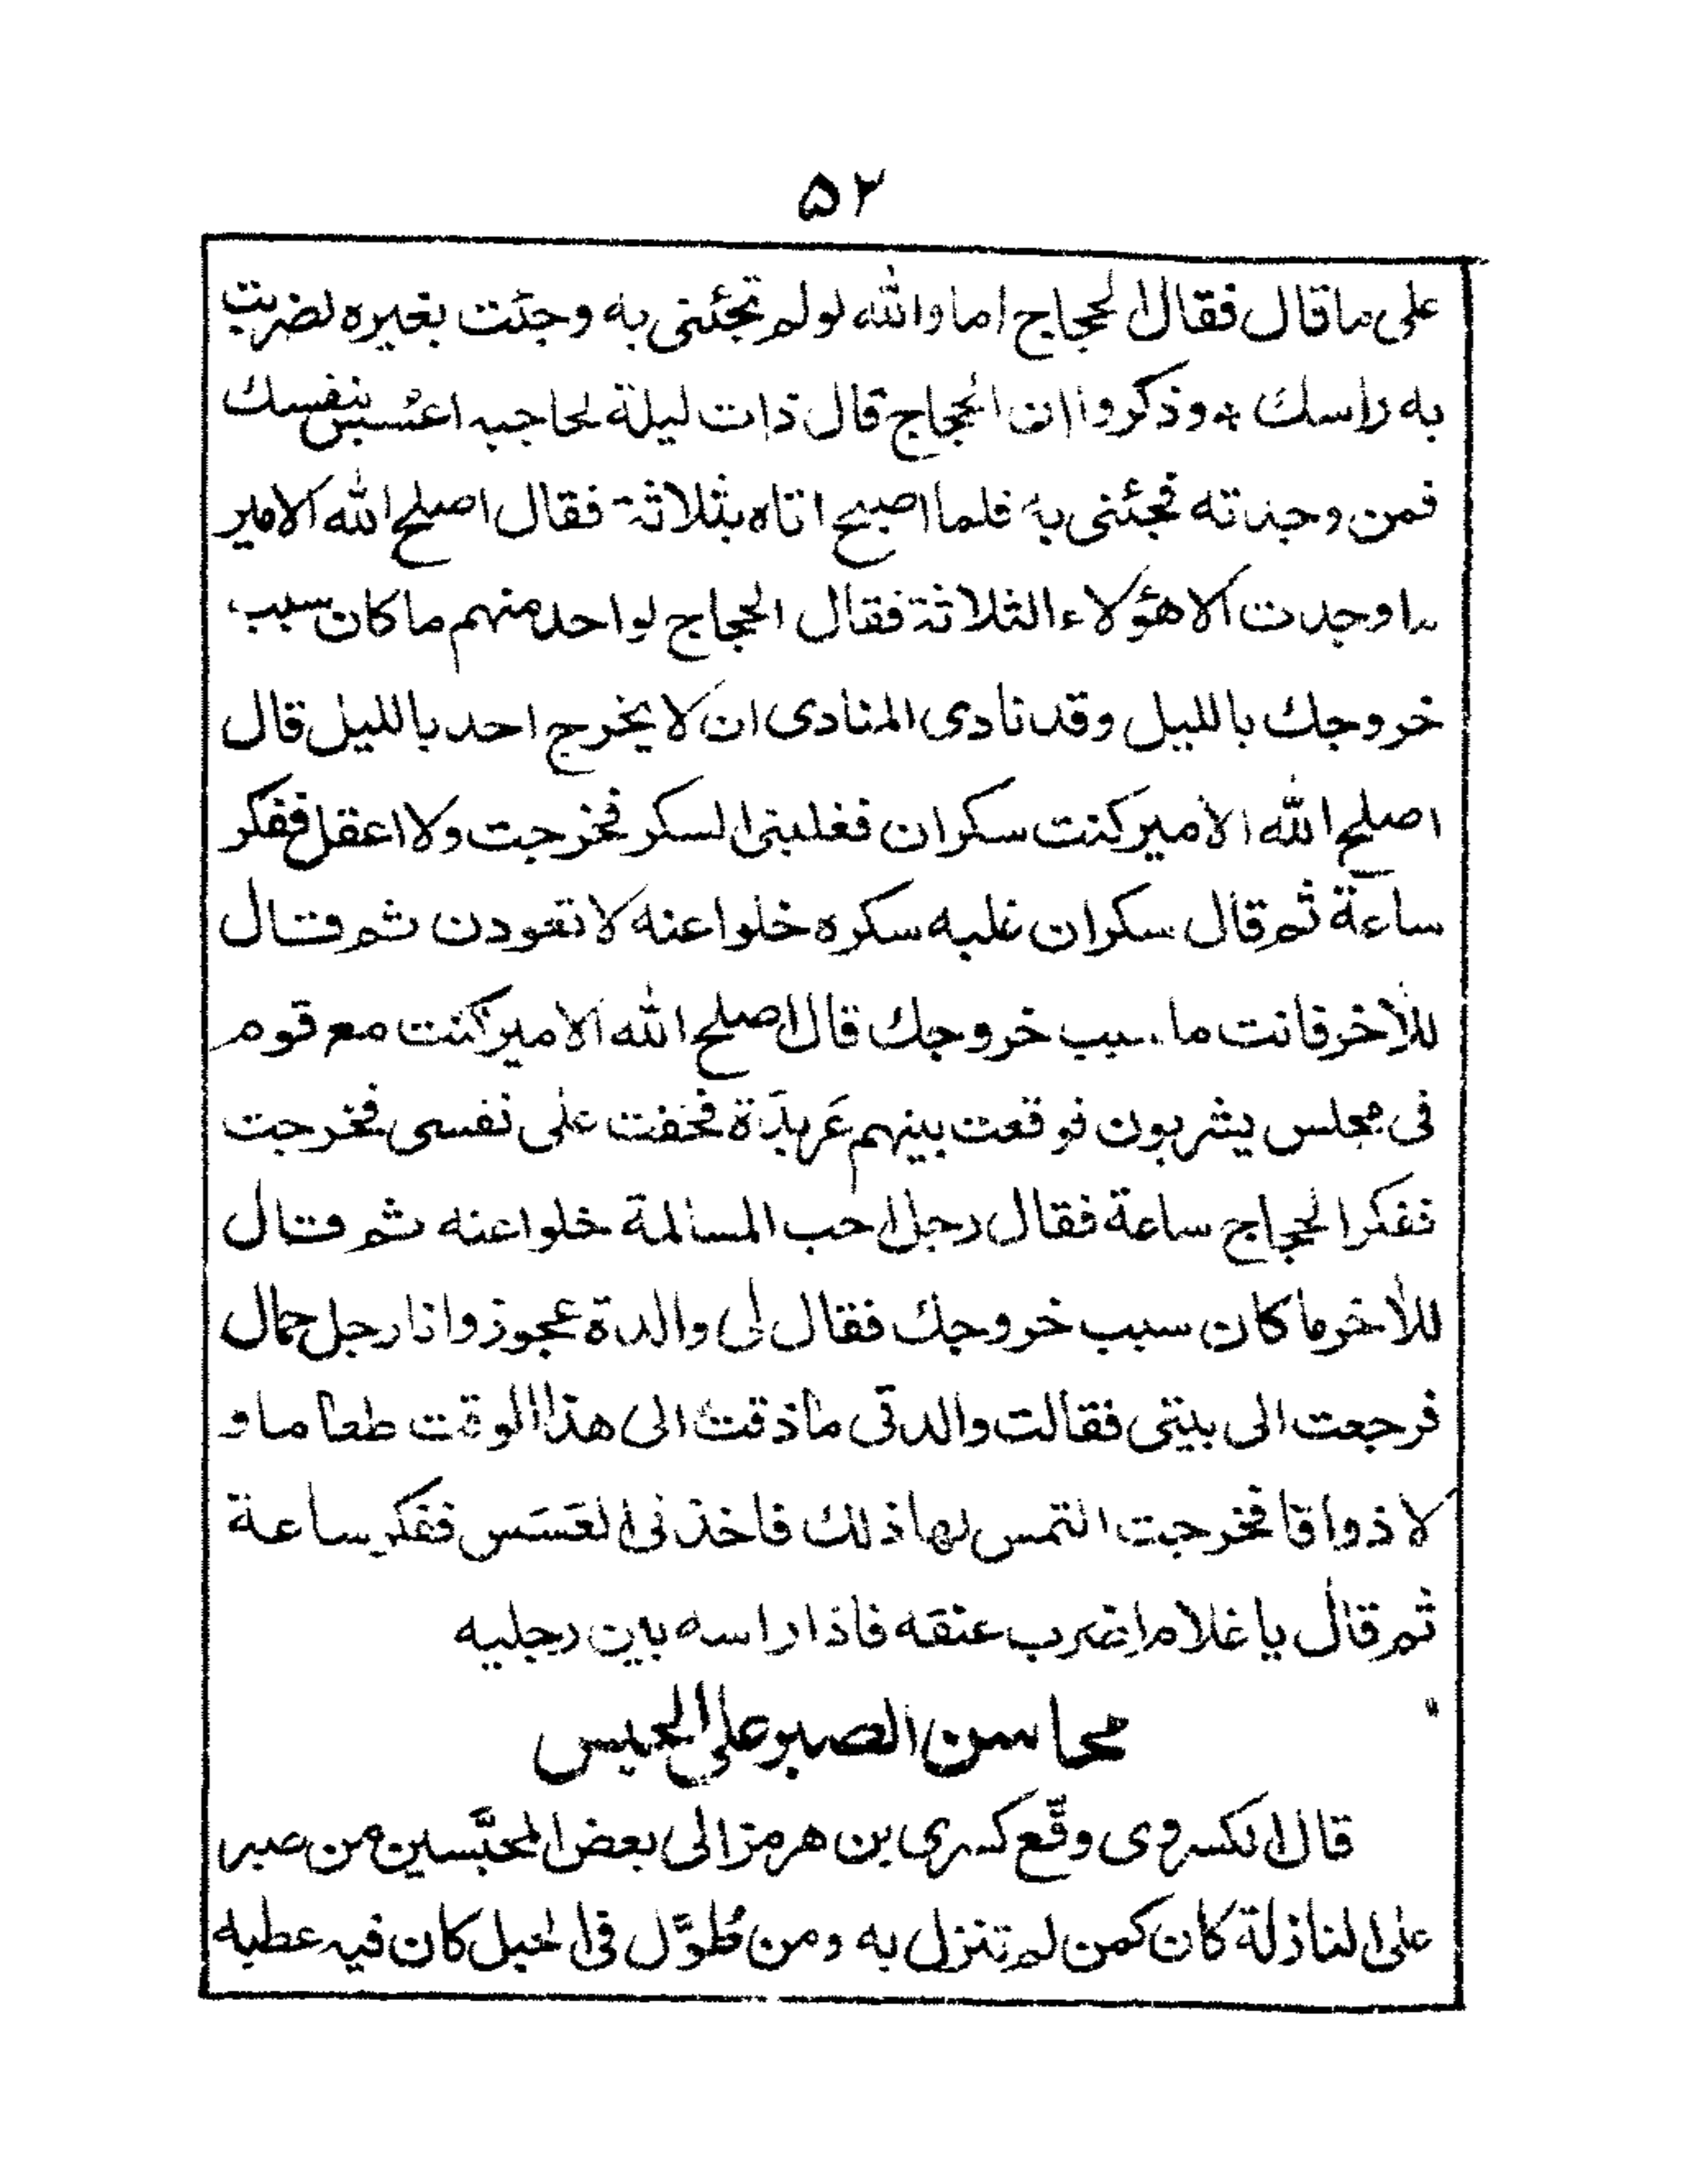 ۵۲
على ما قال فقال الحجاج اما والله لو لم تجئنى به وجئت بغيره لضربت
به راسك * وذكروا ان الحجاج قال ذات ليلة لحاجبه اعسس بنفسك
فمن وجدته فجئنى به فلما اصبح اتاه بثلاثة فقال اصلح الله الامير
ما وجدت الا هؤلاء الثلاثة فقال الحجاج لواحد منهم ما كان سبب
خروجك بالليل وقد نادى المنادى ان لا يخرج احد بالليل قال
اصلح الله الامير كنت سكران فغلبنى السكر فخرجت ولا اعقل ففكر
ساعة ثم قال سكران غلبه سكره خلوا عنه لا تعودن ثم قال
للآخر فانت ما سبب خروجك قال اصلح الله الامير كنت مع قوم
فى مجلس يشربون فوقعت بينهم عَربدَة فخفت على نفسى فخرجت
ففكر الحجاج ساعة فقال رجل احب المسالمة خلوا عنه ثم قال
للآخر ما كان سبب خروجك فقال لى والدة عجوز وانا رجل حمال
فرجعت الى بيتى فقالت والدتى ما ذقت الى هذا الوقت طعاما و
لا ذواقا فخرجت التمس لها ذلك فاخذنى العَسَس ففكر ساعة
ثم قال يا غلام اِضرب عنقه فاذا راسه بين رجليه
محاسن الصبر على الحبس
قال الكسروى وقّع كسرى بن هرمز الى بعض المحبَّسين من صبر
على النازلة كان كمن لم تنزل به ومن طُوِّل فى الحبل كان فيه عطبه